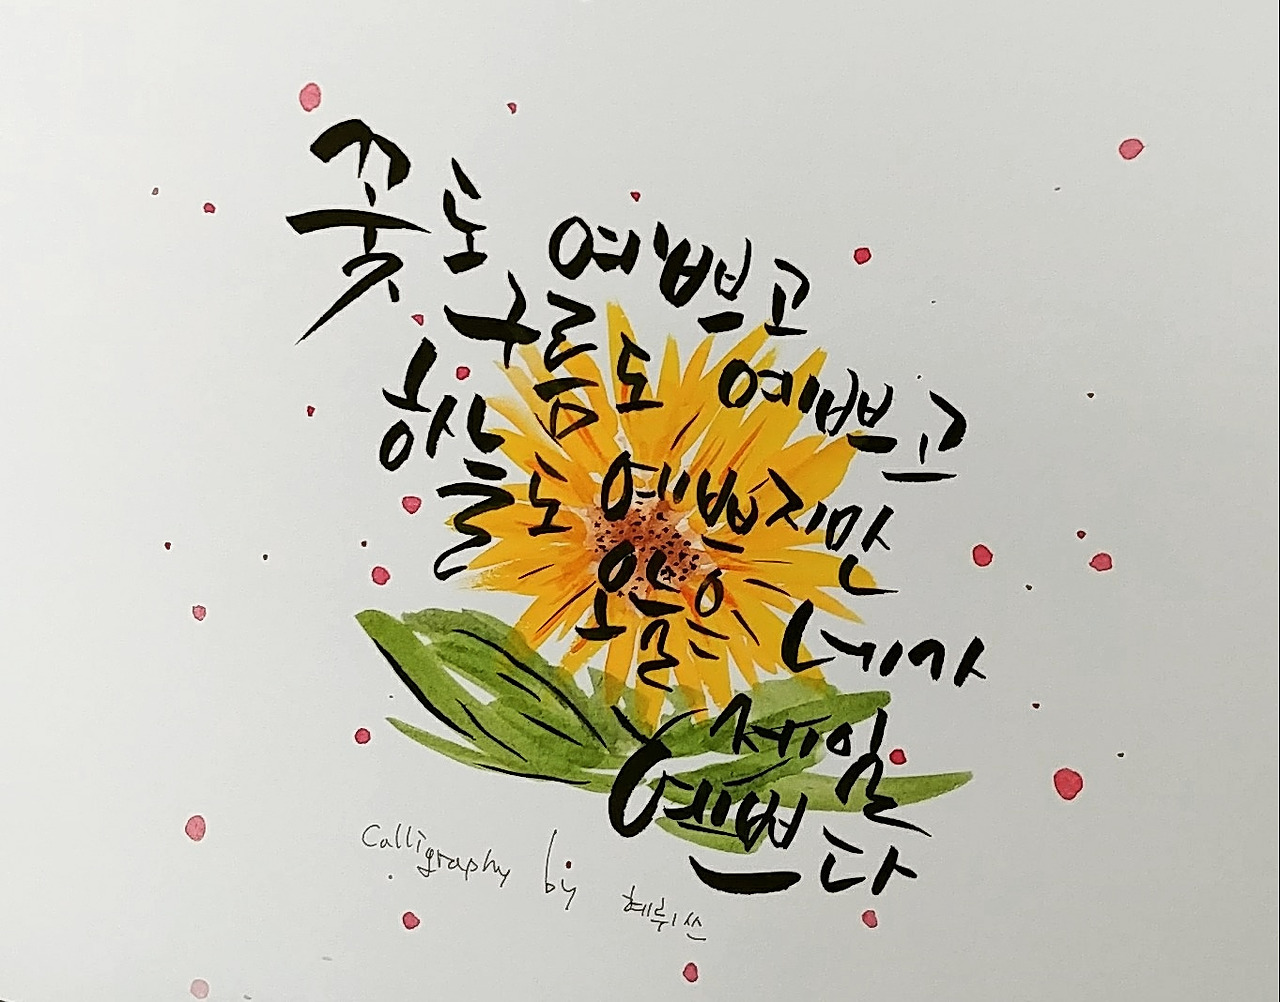 꽃도 예쁘고
구름도 예쁘고
하늘도 예쁘지만
오늘은 네가
제일
예쁘다
Calligraphy by